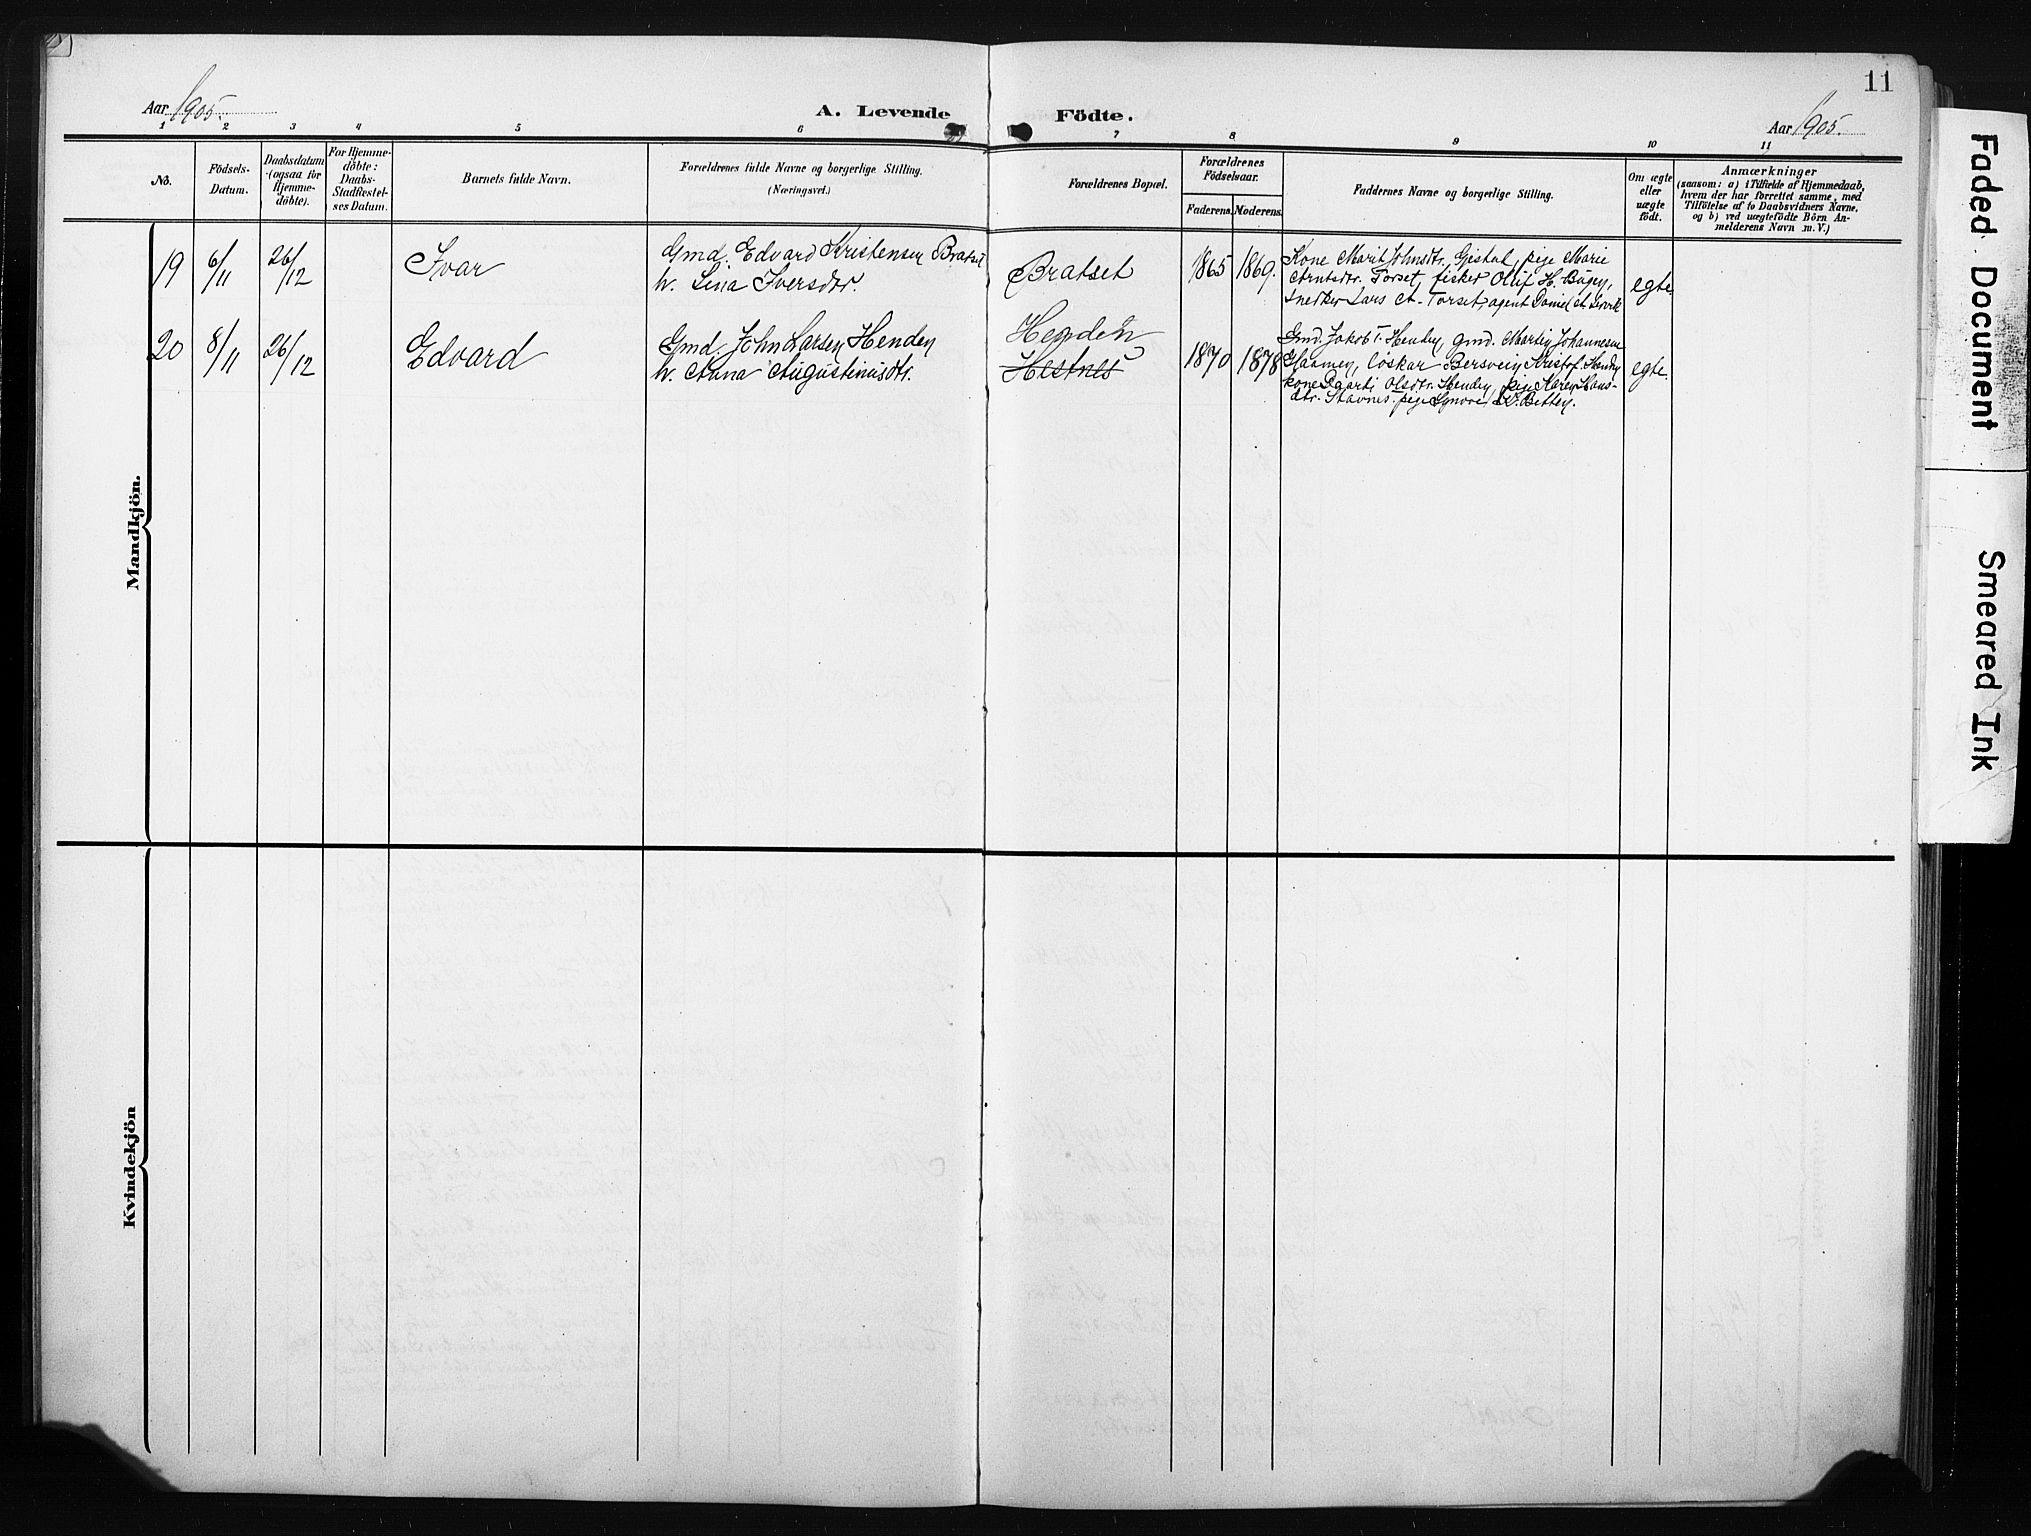 11
Aar 1905. A. Levende Födte. Aar 1905.
1 2 3 4 5 6 7 8 9 10 11
No.
Födsels-
Datum.
Daabsdatum
(ogsaa for
Hjemme-
döbte).
For Hjemme-
döbte:
Daabs-
Stadfæstel-
ses Datum.
Barnets fulde Navn.
Forældrenes fulde Navne og borgerlige Stilling.
(Næringsvei.)
Forældrenes Bopæl.
Forældrenes
Födselsaar.
Faderens. Moderens.
Faddernes Navne og borgerlige Stilling.
Om ægte
eller
uægte
födt.
Anmærkninger
(saasom: a) i Tilfælde af Hjemmedaab,
hvem der har forrettet samme, med
Tilföielse af to Daabsvidners Navne,
og b) ved uægtefödte Börn An-
melderens Navn m. V.)
Mandkjön.
19 6/11 26/12 Ivar
Gmd. Edvard Kristensen Bratset
h. Lina Iversdtr.
Bratset
1865 1869.
Kone Marit Johnsdtr. Gistal, pige Marie
Arntsdtr. Torset, fisker Oluf H. Bögen,
snedker Lars A. Torset, agent Daniel A.
egte.
20 8/11 26/12 Edvard
Gmd. John Larsen Henden
h. Anna Augustinusdtr.
Henden
Hestnes
1870 1878
Gmd. Jakob T. Henden, gmd. Martin Johannesen
löskar Bersvein Kristof. Henden
kone Olsdtr. Henden, pige Karen Hans-
dtr. Stavnes. pige
egte.
Kvindekjön
Faded Document
Smeared Ink